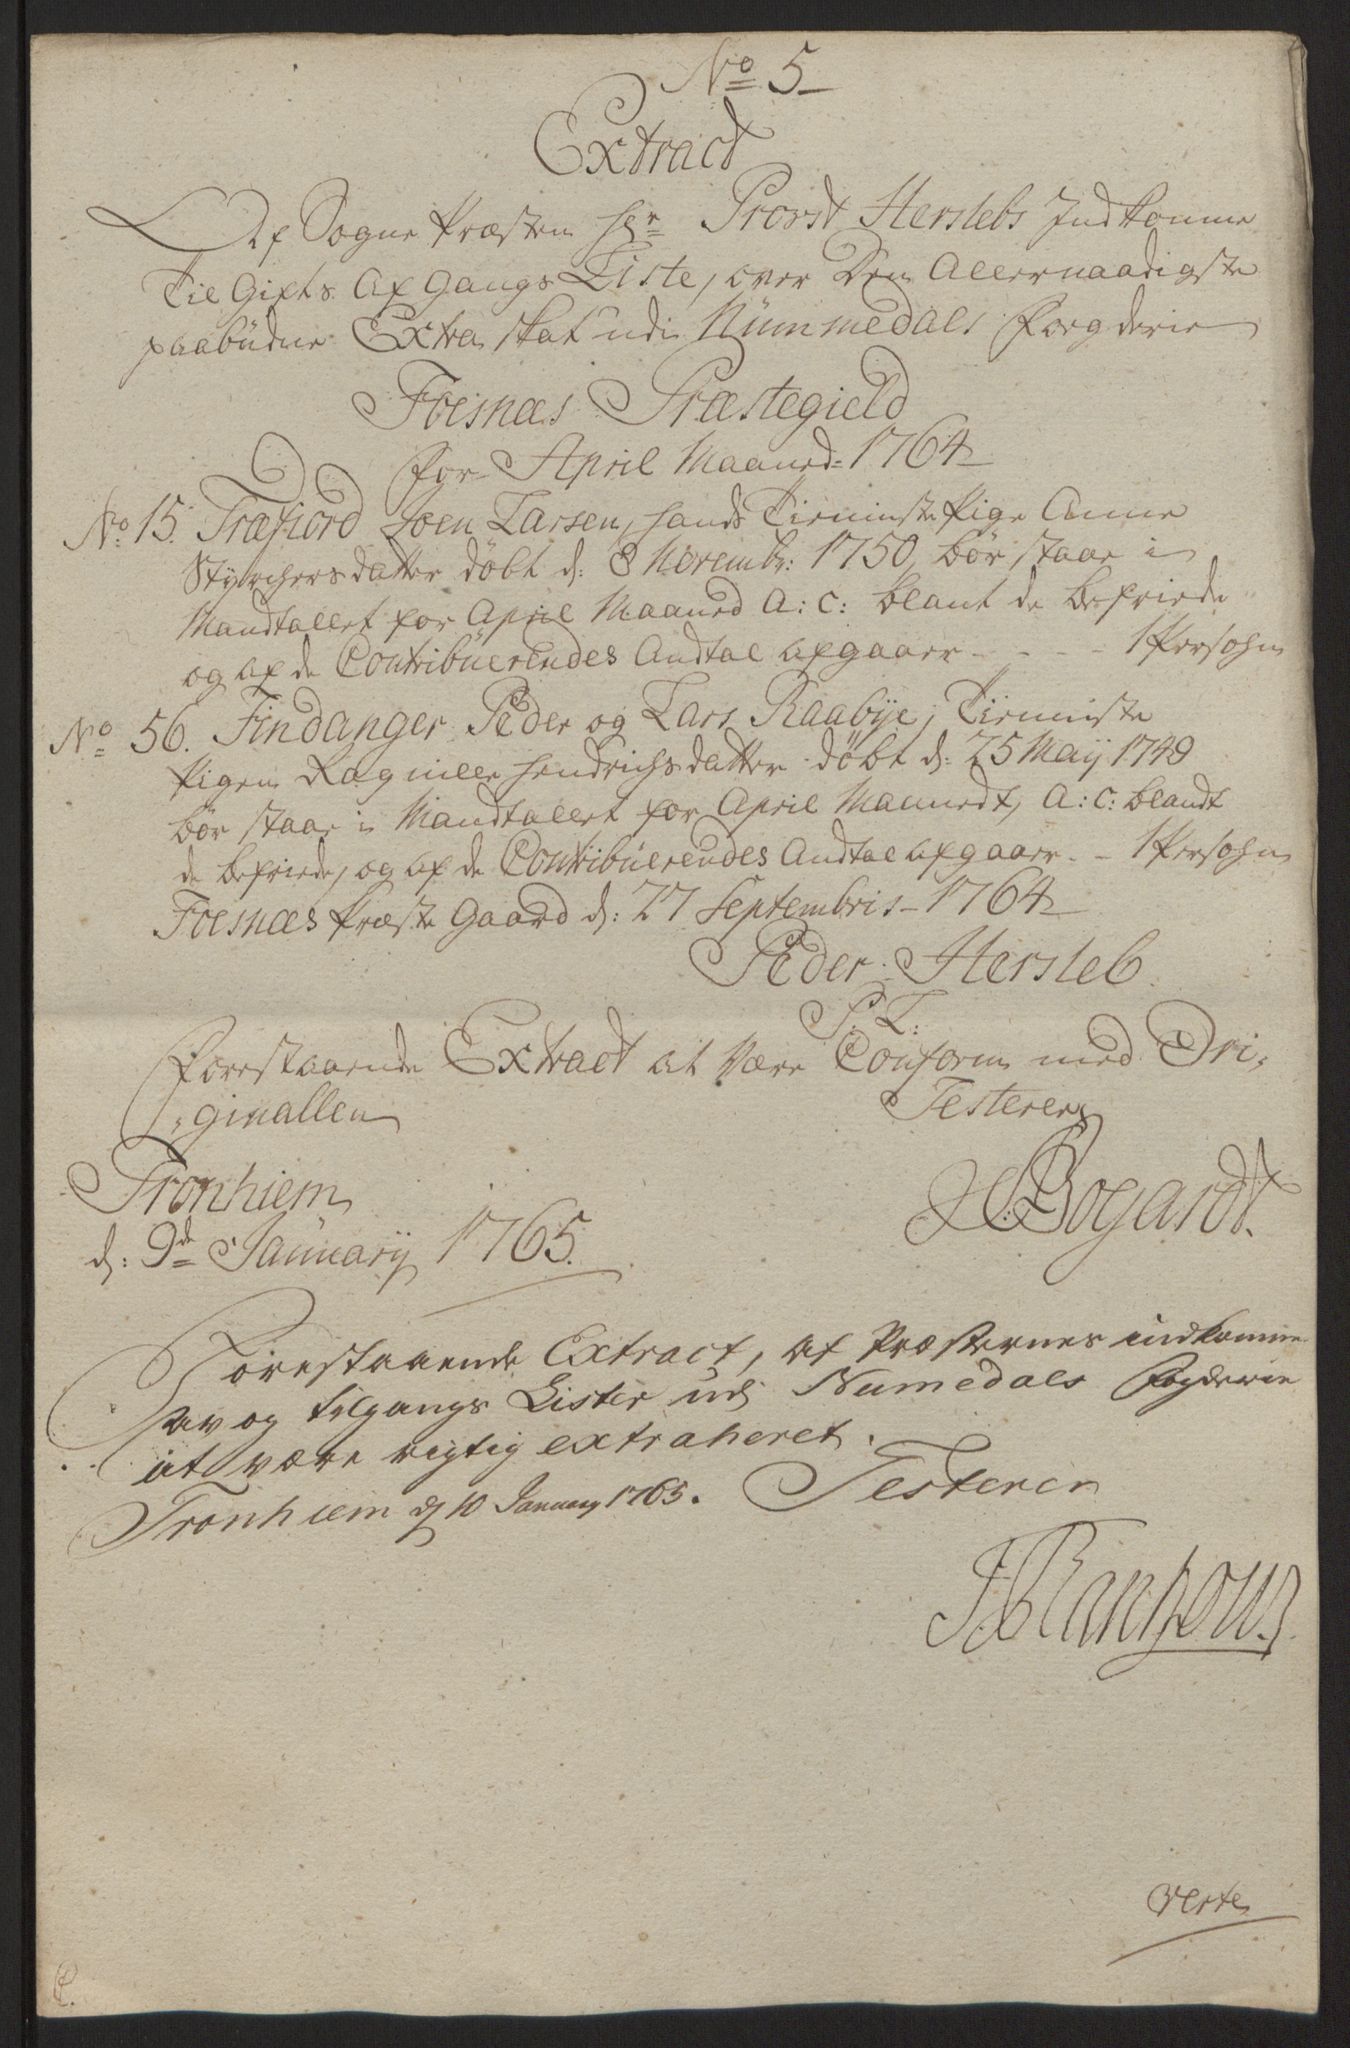 No 5
Extract
Af Sogne Præsten Hr Provst Herslebs Indkomne
Til Gifts Af Gangs Liste, over Den Allernaadigste
paabudne Extra Skat udi Nümmedals Foegderie
Foesnæs Præstegield
for April Maaned 1764
No 15. Træfiord Joen Larsen, hands Tieniste Pige Anne
Styrchersdatter döbt d: 8 Novembr: 1750, bör staae i
Mandtallet for April Maaned A: C: blant de befriede
og af de Contribüerendes Andtal afgaaer - - - - 1 Persohn
No 56. Findanger Peder og Lars Raabÿe, Tieniste
Pigen Ragnille Hendrichsdatter döbt d: 25 Maij 1749
bör staae i Mandtallet for April Maanedt, A: C: blandt
de befriede, og af de Contribüerendes Andtal afgaaer - - 1 Persohn
Foesnæs Præste Gaard d: 27 Septembris 1764
Peder Hersleb
P: L:
Forestaaende Extract at være Conform med Ori-
ginallen Testerer
Tronhiem HCBogardt.
d: 9de Januarij 1765.
Forestaaende Extract, af Præsternes indkomne
av og tilgangs Lister udj Numedals Fogderie
at være rigtig extraheret.
Tronhiem d 10 January 1765. Testerer
Rantzow
verte